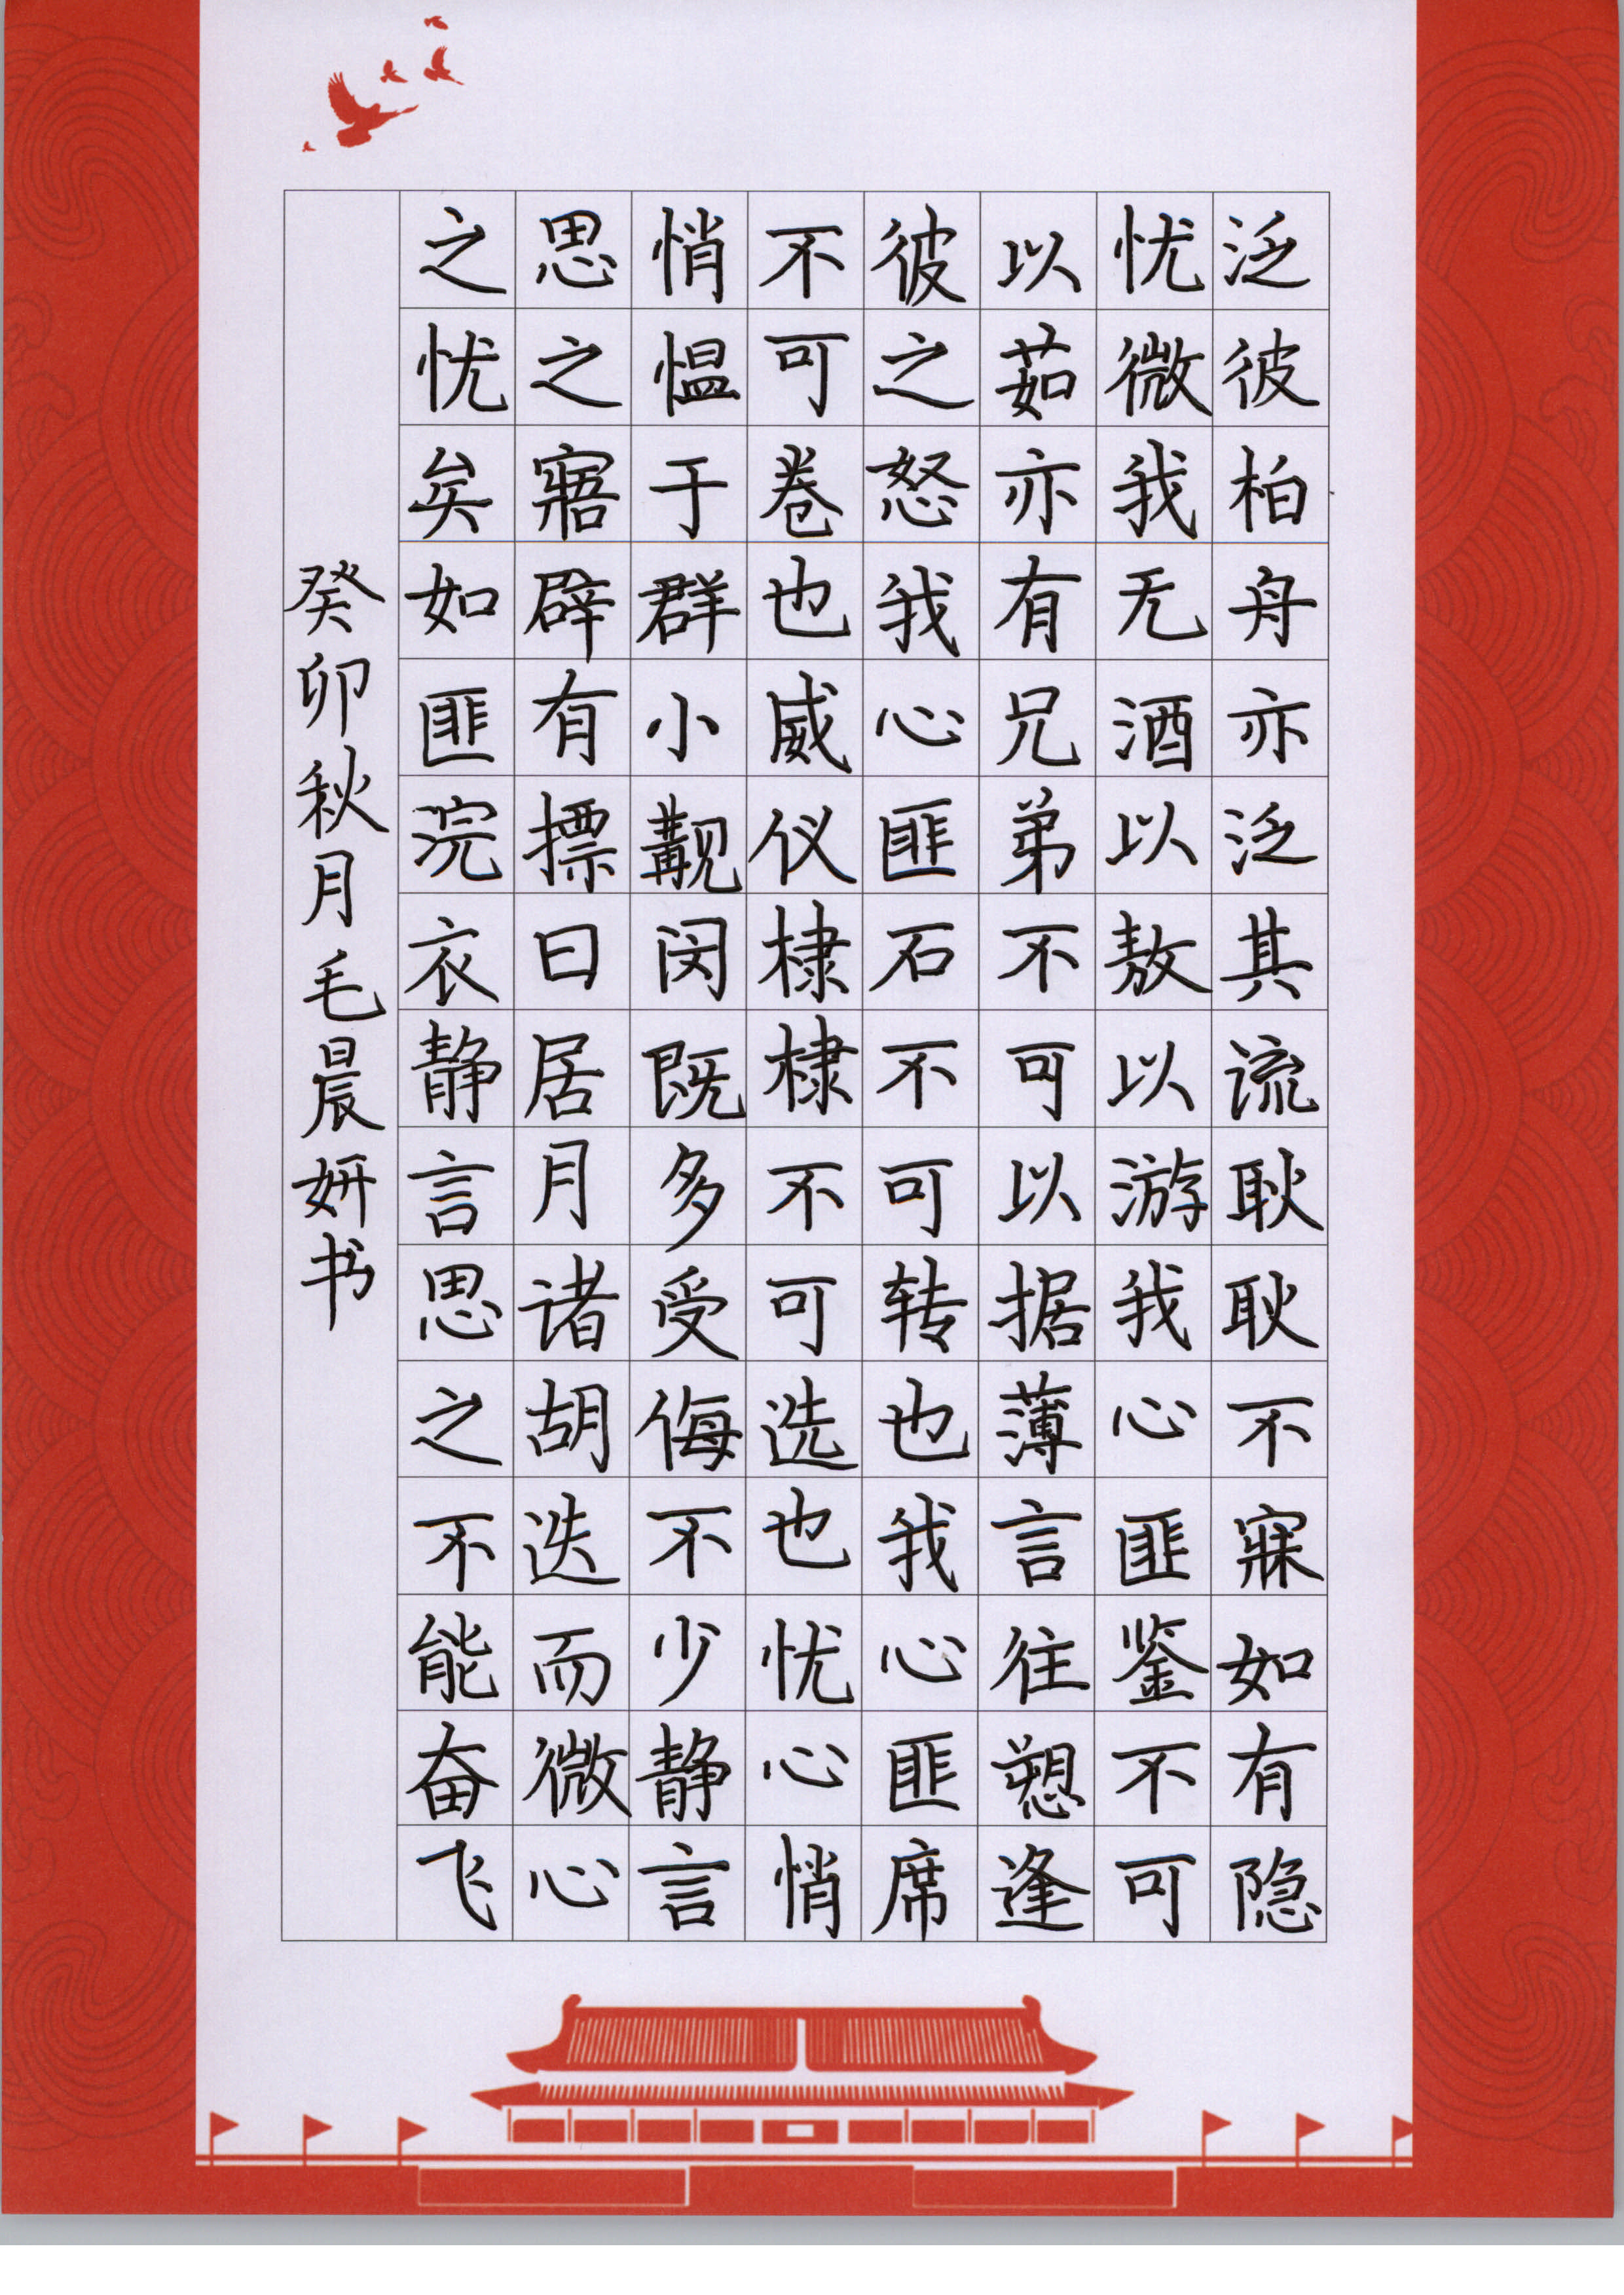 泛彼柏舟亦泛其流耿耿不寐如有隐
忧微我无酒以敖以游我心匪鉴不可
以茹亦有兄弟不可以据薄言往愬逢
彼之怒我心匪石不可转也我心匪席
不可卷也威仪棣棣不可选也忧心悄
悄愠于群小觏闵既多受侮不少静言
思之寤辟有摽日居月诸胡迭而微心
之忧矣如匪浣衣静言思之不能奋飞
癸卯秋月毛晨妍书